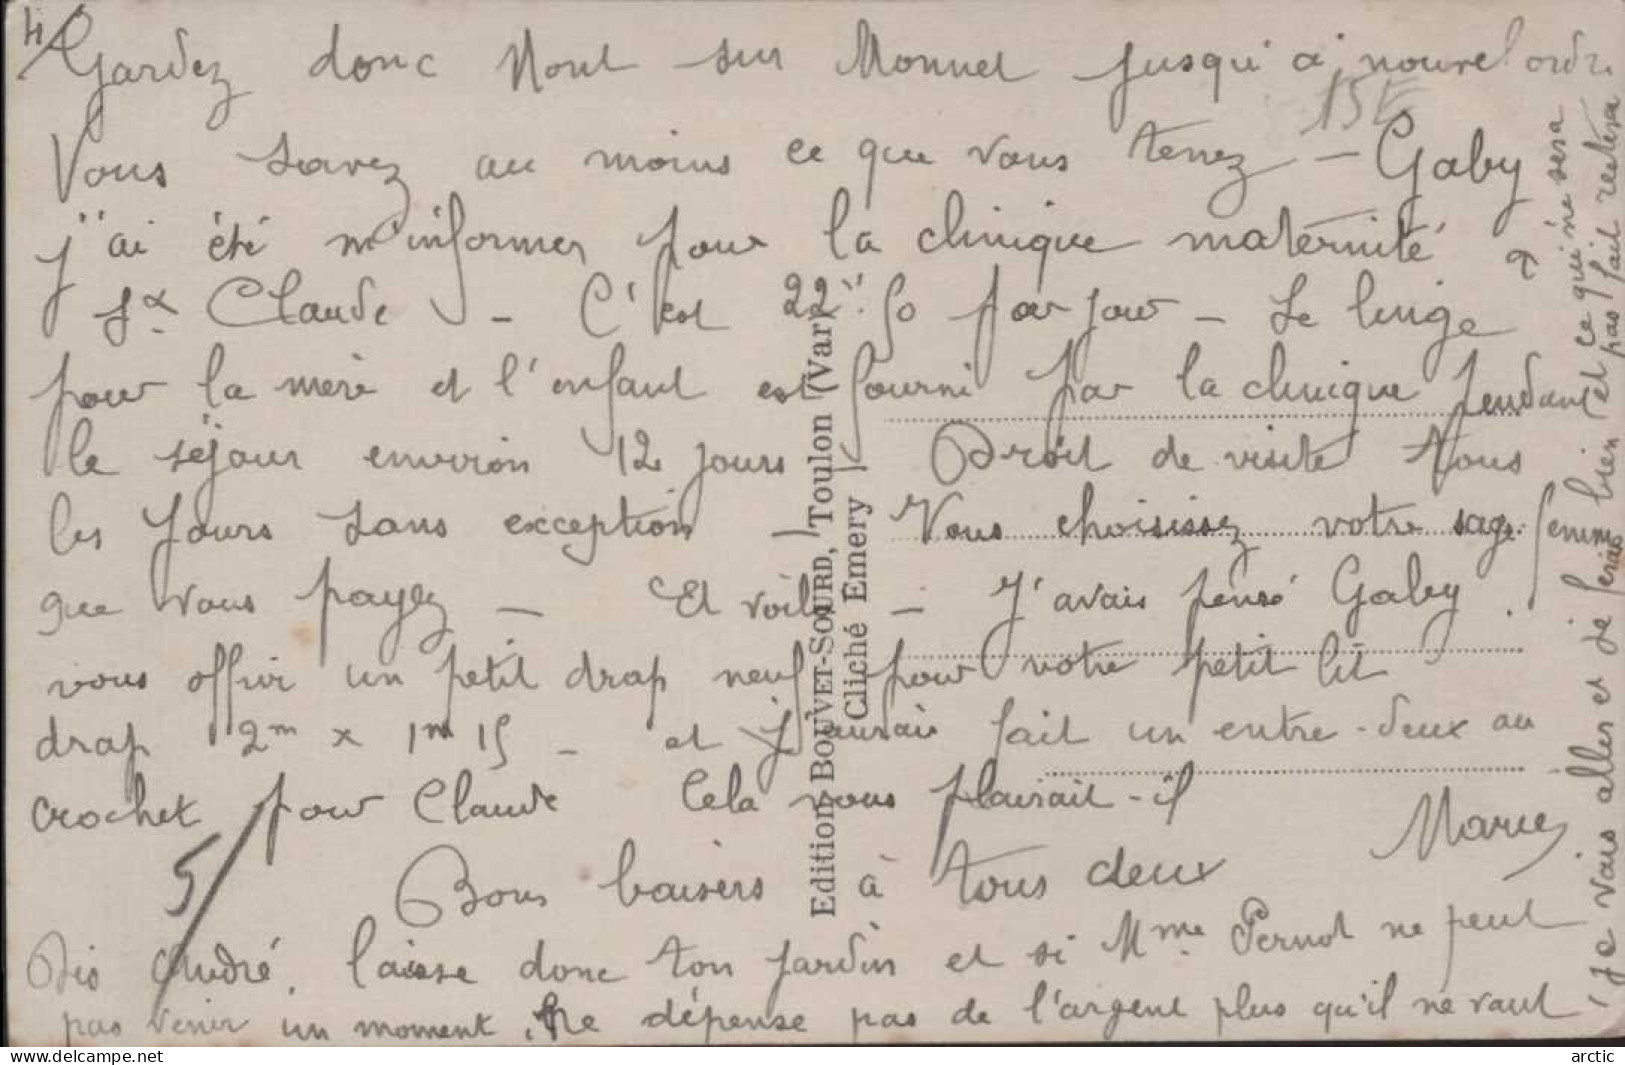 4/
Gardez donc Mont sur Monnet jusqu'à nouvel ordr.
15E
Vous savez au moins ce que vous tenez — Gaby
j'ai été m'informer pour la clinique maternité à
St Claude — C'est 22".50 par jour — Le linge
pour la mère et l'enfant est fourni par la clinique pendant
le séjour environ 12 jours Droit de visite tous
les jours sans exception — Vous choisissez votre sage-femme
que vous payez — Et voilà — J'avais pensé Gaby
vous offrir un petit drap neuf pour votre petit lit
drap 2m x 1m15 — et j'aurais fait un entre-deux au
crochet pour Claude Cela vous plairait-il
Marie
Bons baisers à tous deux
5/
Dis André, laisse donc ton jardin et si Mme Pernot ne peut
pas venir un moment, ne dépense pas de l'argent plus qu'il ne vaut
Je vais aller et je ferai bien et ce qui ne sera
pas fait restera
Edition BOUVET-SOURD, Toulon (Var)
Cliché Emery
arctic